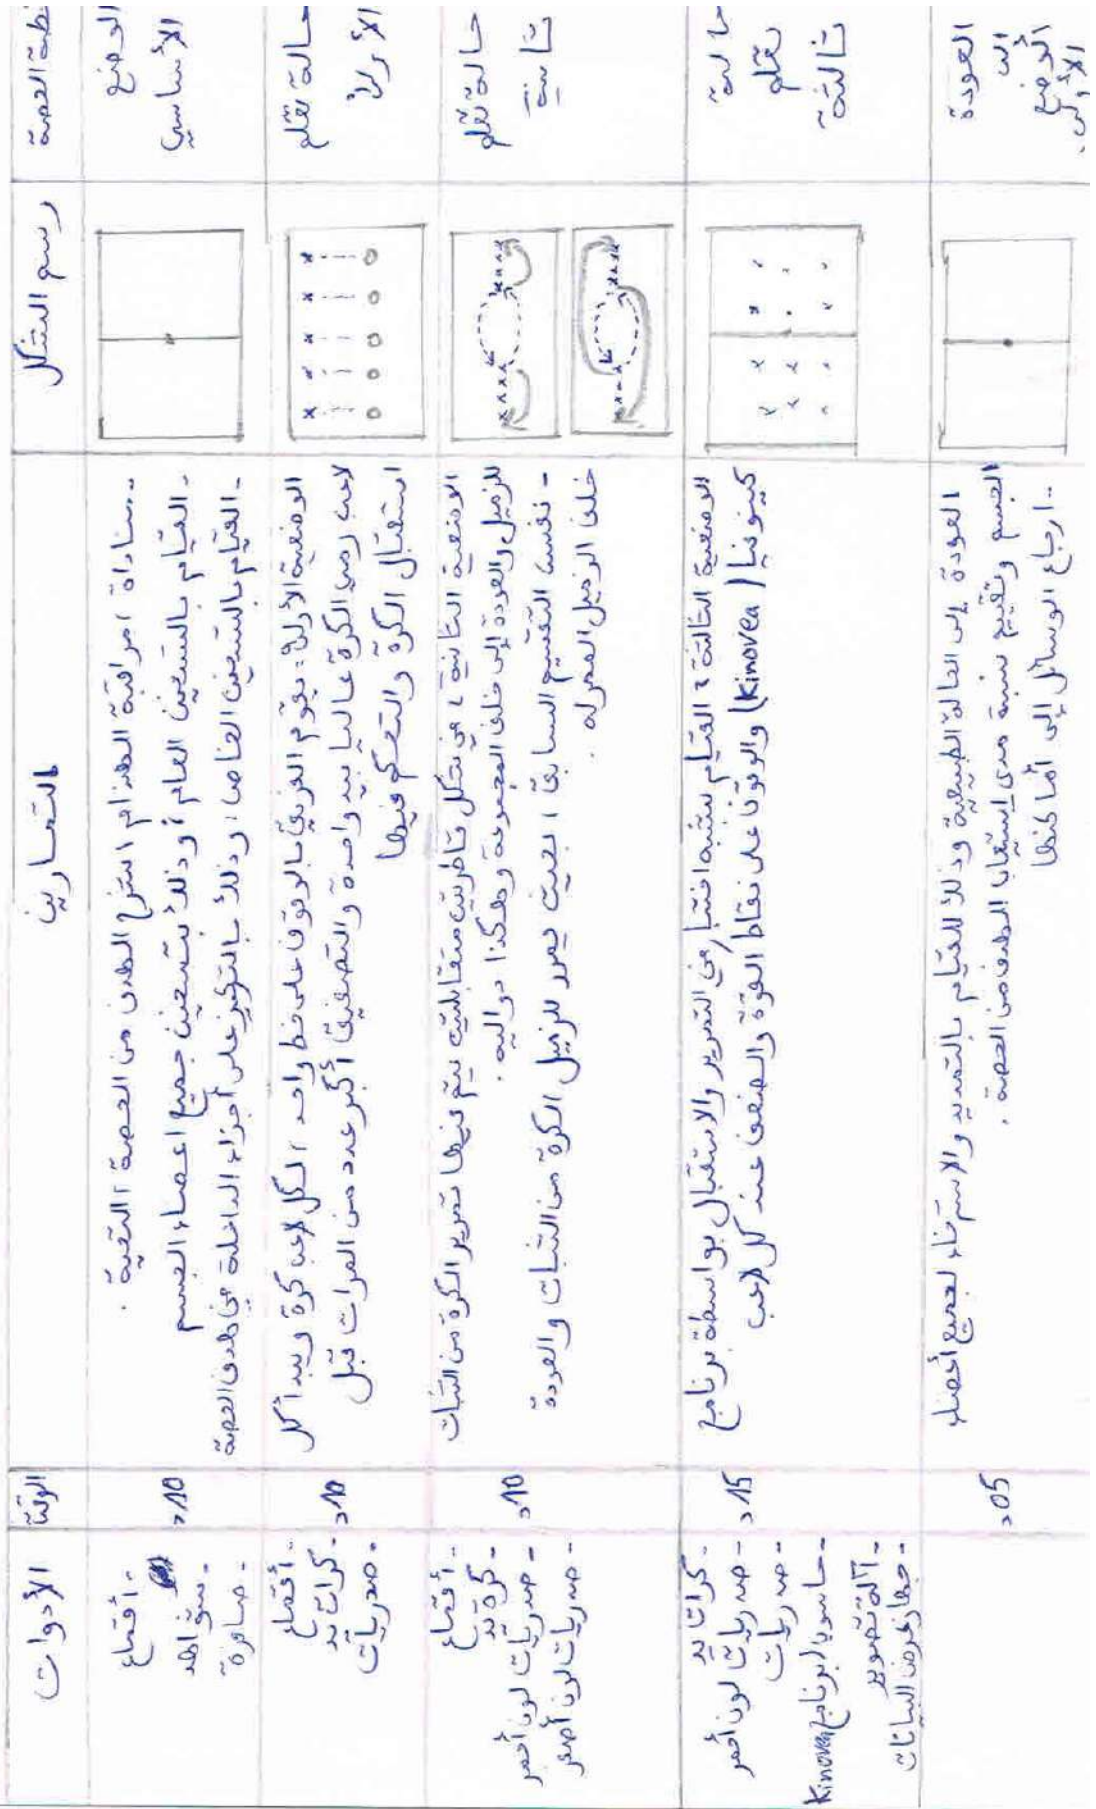 خطة الحصة
رسم الشكل
التمارين
الوقت
الأدوات
الوضع
الأساسي
- مناداة، مراقبة الهندام، شرح الهدف من الحصة، التحية.
- القيام بالتسخين العام، وذلك بتسخين جميع أعضاء الجسم
- القيام بالتسخين الخاص، وذلك بالتركيز على أجزاء الداخلة في هدف الحصة
10د
- أقماع
- شواهد
- صافرة
حالة تعلم
الأولى
الوضعية الأولى: يقوم الفريق بالوقوف على خط واحد، لكل لاعب كرة ويبدأ كل
لاعب رمي الكرة عاليا بيد واحدة والتصفيق أكبر عدد من المرات قبل
استقبال الكرة والتحكم فيها
10د
- أقماع
- كرات يد
- صدريات
حالة تعلم
ثانية
الوضعية الثانية: في شكل قاطرتين متقابلتين يتم فيها تمرير الكرة من الثبات
للزميل والعودة إلى خلف المجموعة وهكذا دواليه.
- نفس التقسيم السابق، بحيث يمرر للزميل الكرة من الثبات والعودة
خلف الزميل الممرر له.
10د
- أقماع
- كرة يد
- صدريات لون أحمر
- صدريات لون أصفر
حالة
تعلم
ثالثة
الوضعية الثالثة: القيام بشبه اختبار في التمرير والاستقبال بواسطة برنامج
كينوفيا (Kinovea) والوقوف على نقاط القوة والضعف عند كل لاعب
15د
- كرات يد
- صدريات لون أحمر
- صدريات
- حاسوب (برنامج Kinovea
- آلة تصوير
- جهاز عرض البيانات
العودة
إلى
الوضع
الأولي.
العودة إلى الحالة الطبيعية وذلك للقيام بالتمديد والاسترخاء لجميع أعضاء
الجسم وتقييم نسبة مدى إستعاب الهدف من الحصة.
- ارجاع الوسائل إلى أماكنها
05د